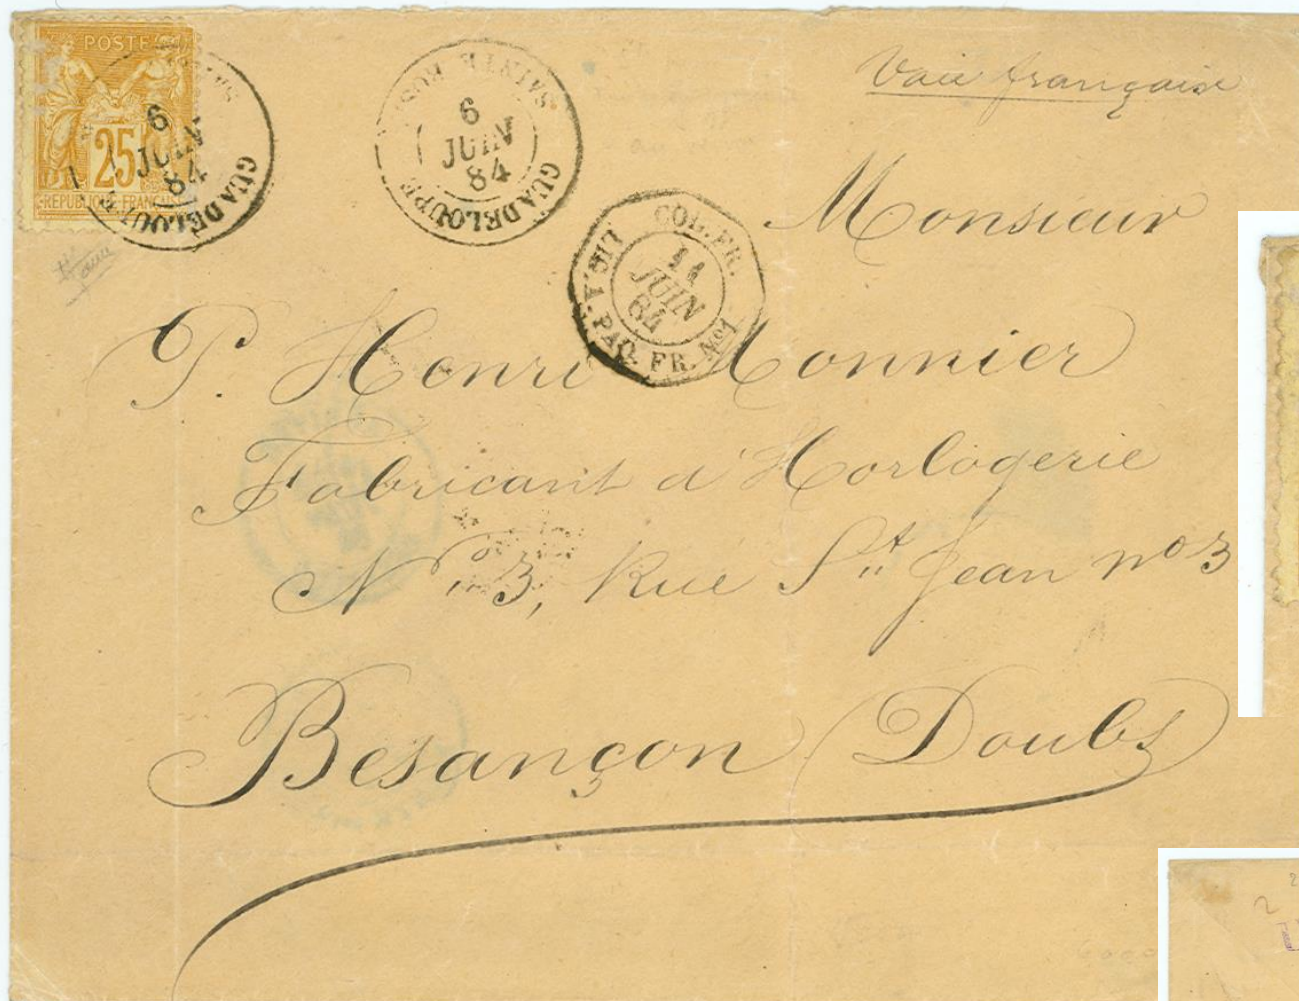 POSTE
25
REPUBLIQUE FRANÇAISE
6
JUIN
84
GUADELOUPE
SAINTE ROSE
6
JUIN
84
GUADELOUPE
Voie française
COL. FR.
11
JUIN
84
LIG. A. PAQ. FR. No1
Monsieur
P. Henri Monnier
Fabricant d'Horlogerie
No 3, Rue St Jean no 3
Besançon (Doubs)